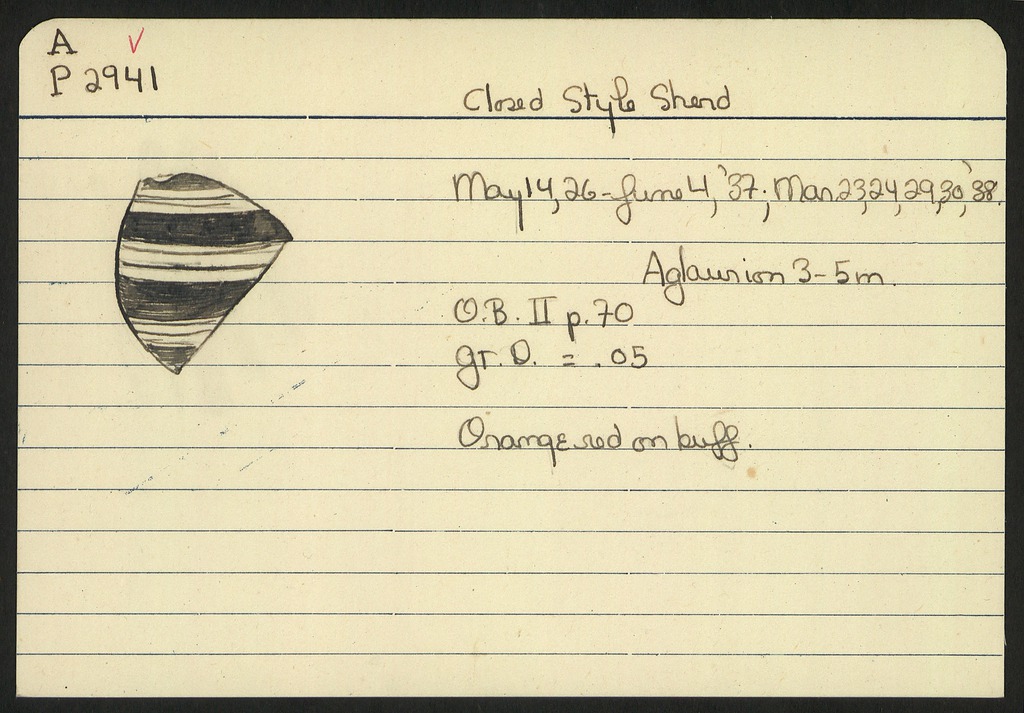 A ✓
P 2941
Closed Style Sherd
May 14, 26-June 4, '37; Mar. 23, 24, 29, 30, '38.
Aglaurion 3-5m.
O.B. II p. 70
gr. D. = .05
Orange red on buff.